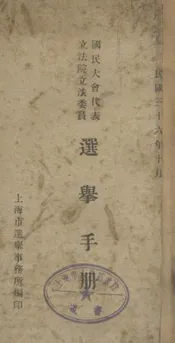 民國三十六年十月
國民大會代表
立法院立法委員
選舉手册
上海市選舉事務所編印